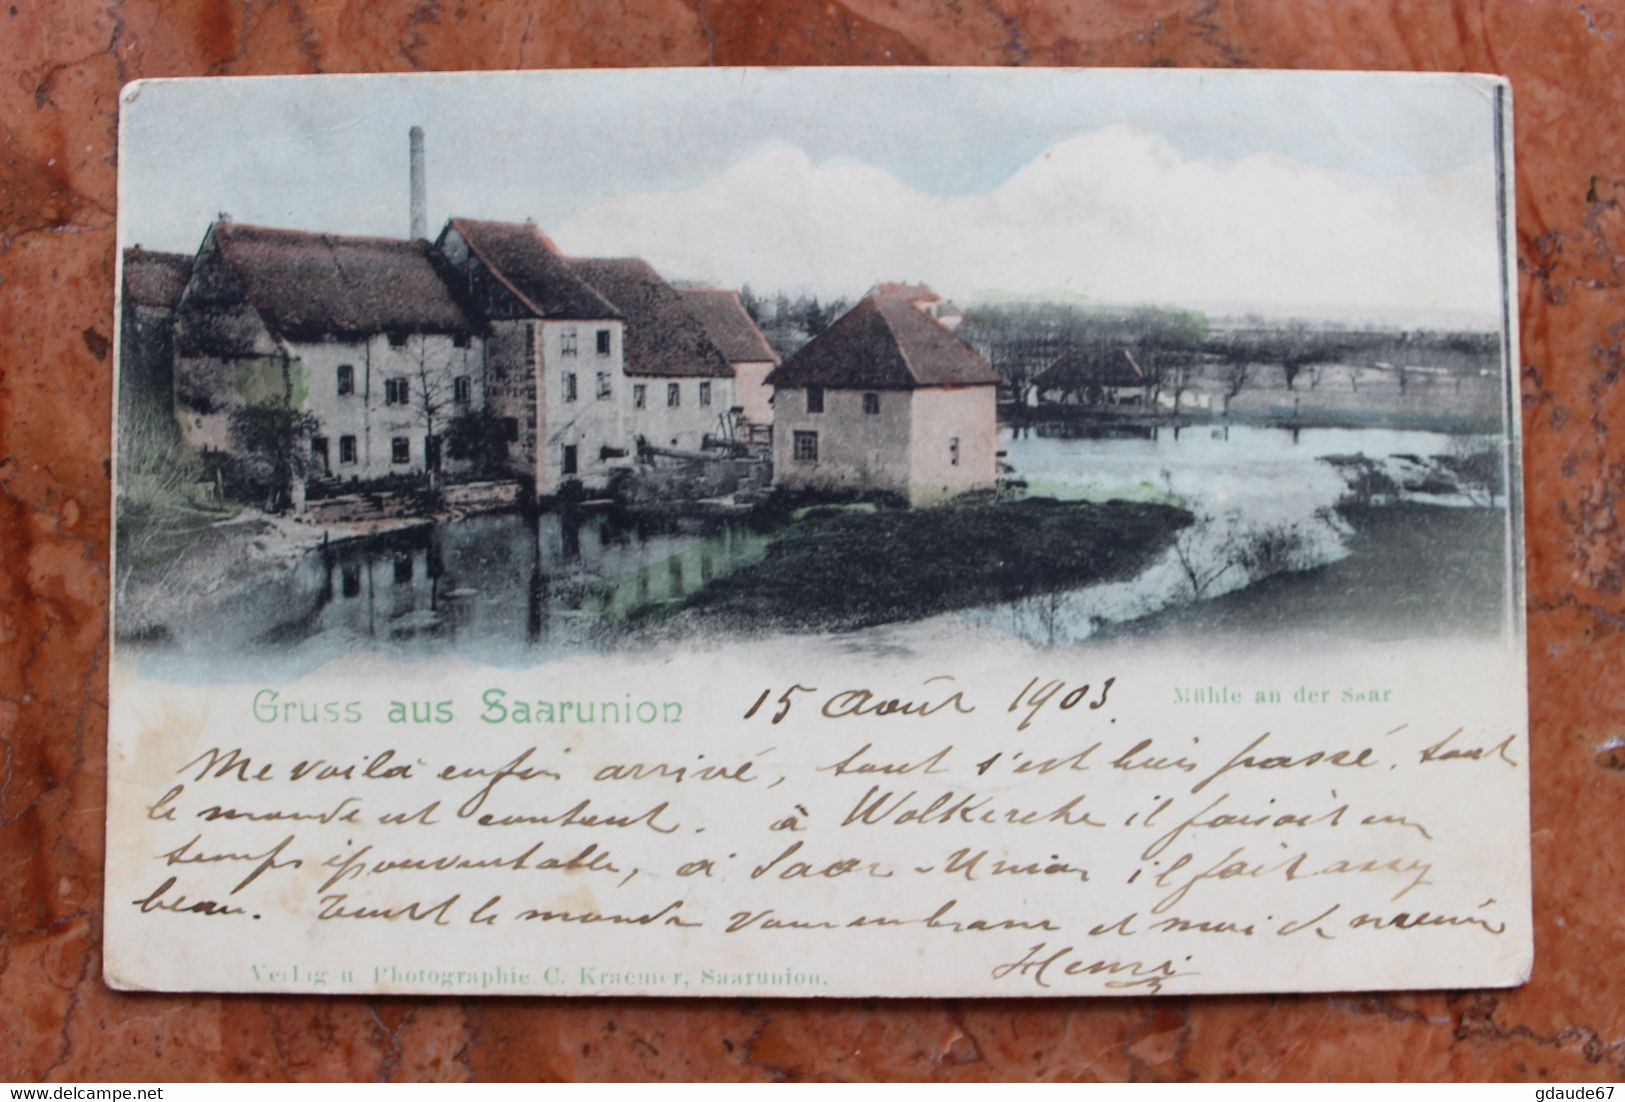 Gruss aus Saarunion 15 Août 1903. Mühle an der Saar
Me voilà enfin arrivé, tout s'est bien passé. tout
le monde est content. à Walkirche il faisait un
temps épouventable, à Saar-Union il fait assez
beau. Tout le monde vous embrasse et moi de même
Henri
Verlag u. Photographie C. Kraemer, Saarunion.
gdaude67